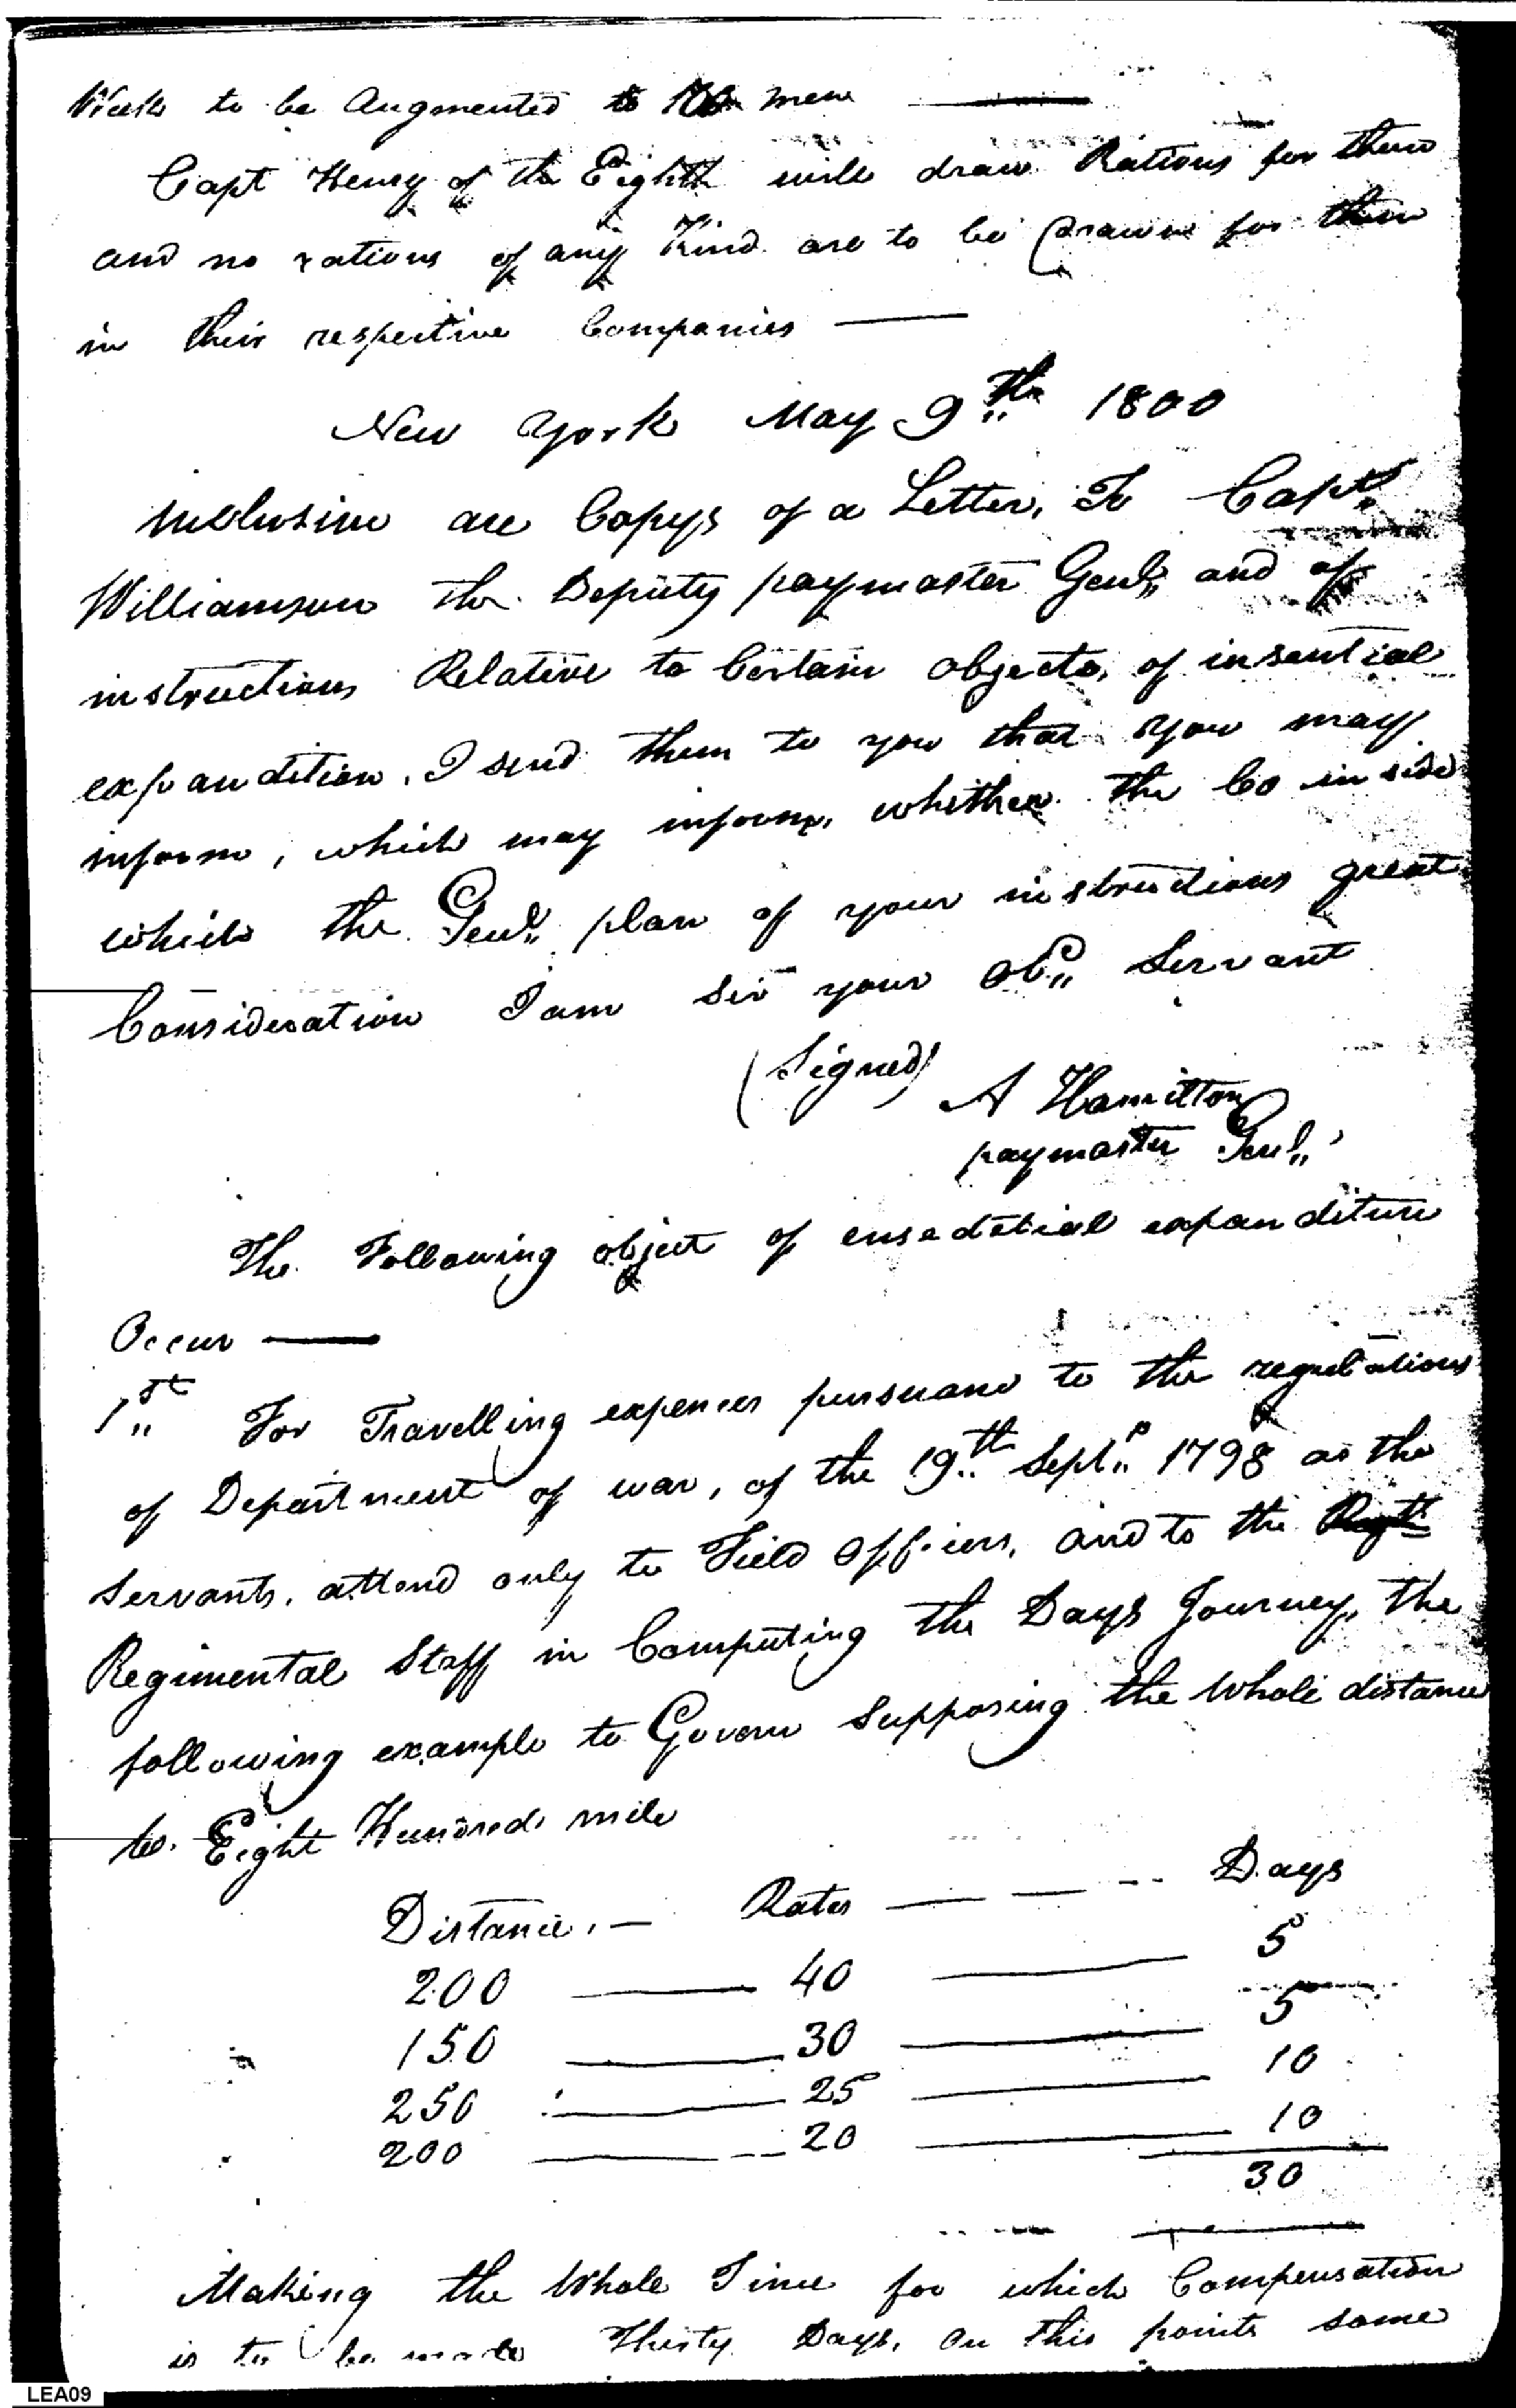 Week to be Augmented to men
Capt Henry of the Eighth will draw Rations for them
and no rations of any Kind are to be Drawn for them
in their respective Companies
New York May 9th 1800
inclusive are Copys of a Letter, To Capt.
Williamson the Deputy paymaster Genl. and of
instructions Relative to Certain objects, of insential
expandition, I send them to you that you may
inform, which may inform, whither the Co in side
which the Genl. plan of your instructions great
Consideration I am Sir your Ob. Servant
(Signed) A Hamilton
paymaster Genl.
The Following object of ensedetial expanditure
Occur
1st For Travelling expences pursuand to the regulations
of Department of war, of the 19th Sept. 1798 as the
Servants, attend only to Field Officers, and to the
Regimental Staff in Computing the Days Journey, the
following example to Govern Supposing the Whole distance
to. Eight Hundred mile
Distance, Rates Days
200 40 5
150 30 5
250 25 10
200 20 10
30
Making the Whole Time for which Compensation
is to be made Thirty Days, on this points some
LEA09